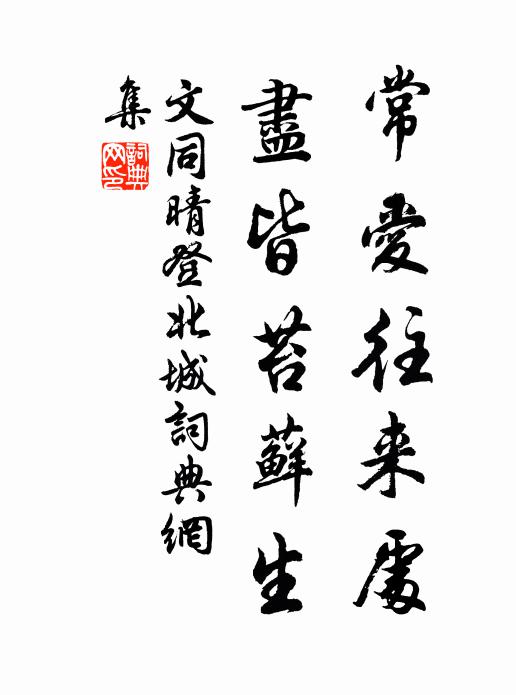 常愛往来處
盡皆苔蘚生
文同晴登北城詞典網
集
詞典網印